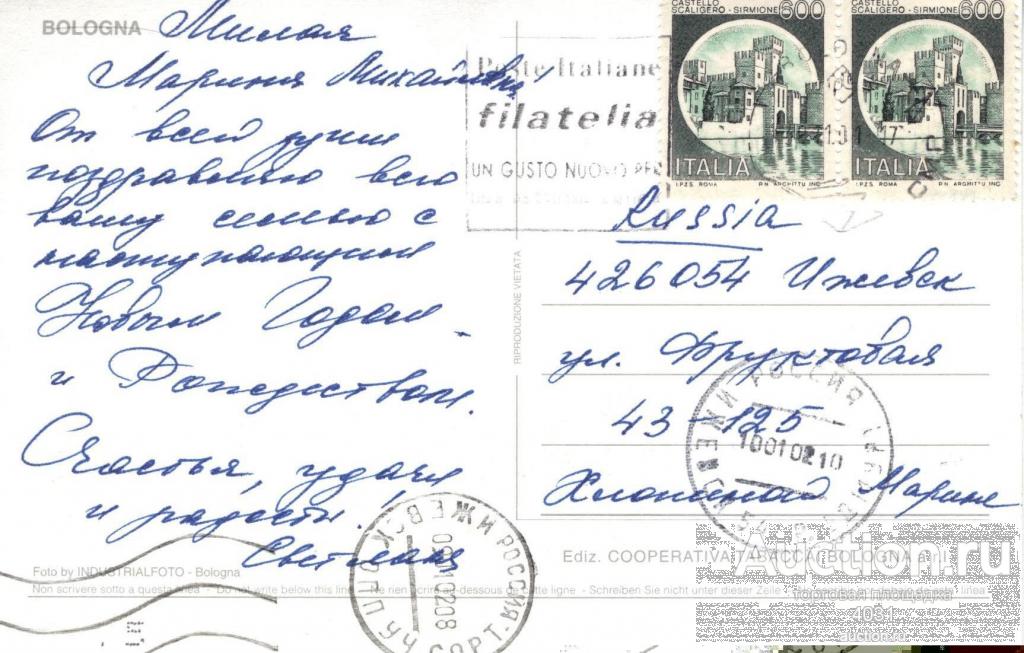 BOLOGNA
Милая
Марина Михайловна!
От всей души
поздравляю всю
вашу семью с
наступающим
Новым Годом
и Рождеством.
Счастья, удачи
и радости!
Светлана
Foto by INDUSTRIALFOTO - Bologna
Non scrivere sotto a questa linea - Do not write below this line - Ne rien écrire au dessous de cette ligne - Schreiben Sie nicht unter dieser Zeile
linea
RIPRODUZIONE VIETATA
Poste Italiane
filatelia
UN GUSTO NUOVO PER
CASTELLO
SCALIGERO - SIRMIONE
600
ITALIA
I.P.Z.S. ROMA
P.N. ARGHITTU INC.
CASTELLO
SCALIGERO - SIRMIONE
600
ITALIA
I.P.Z.S. ROMA
P.N. ARGHITTU INC.
Russia
426054 Ижевск
ул. Фруктовая
43-125
Хлопиной Марине
РОССИЯ
ИЖЕВСК 54
10010210
Ediz. COOPERATIVA TABACCAI BOLOGNA
РОССИЯ ИЖЕВСК
СОРТ.
Auction.ru
торговая площадка
4081
auction.ru